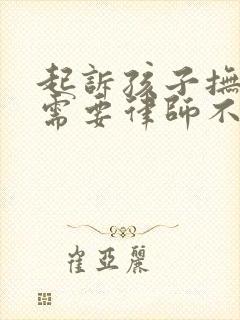 起訴孩子撫
需要律師不
崔亞麗